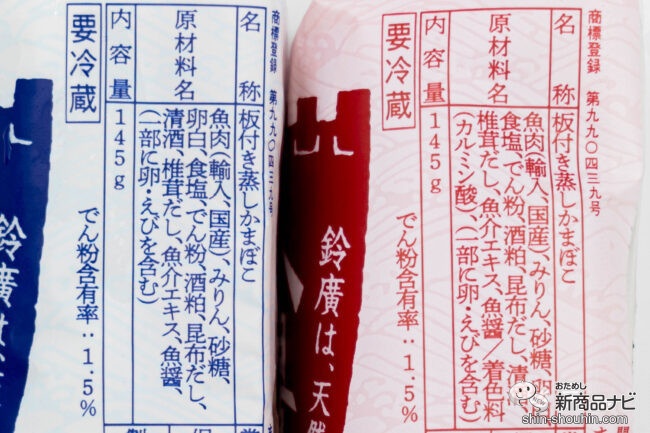 商標登録 第九九〇四三九号
名称 板付き蒸しかまぼこ
原材料名 魚肉(輸入、国産)、みりん、砂糖、
卵白、食塩、でん粉、酒粕、昆布だし、
清酒、椎茸だし、魚介エキス、魚醤、
(一部に卵・えびを含む)
内容量 145g
でん粉含有率:1.5%
要冷蔵
鈴廣は、
商標登録 第九九〇四三九号
名称 板付き蒸しかまぼこ
原材料名 魚肉(輸入、国産)、みりん、砂糖、卵
食塩、でん粉、酒粕、昆布だし、清
椎茸だし、魚介エキス、魚醤/着色料
(カルミン酸)、(一部に卵・えびを含む)
内容量 145g
でん粉含有率:1.5%
要冷蔵
鈴廣は、天
おためし
新商品ナビ
shin-shouhin.com